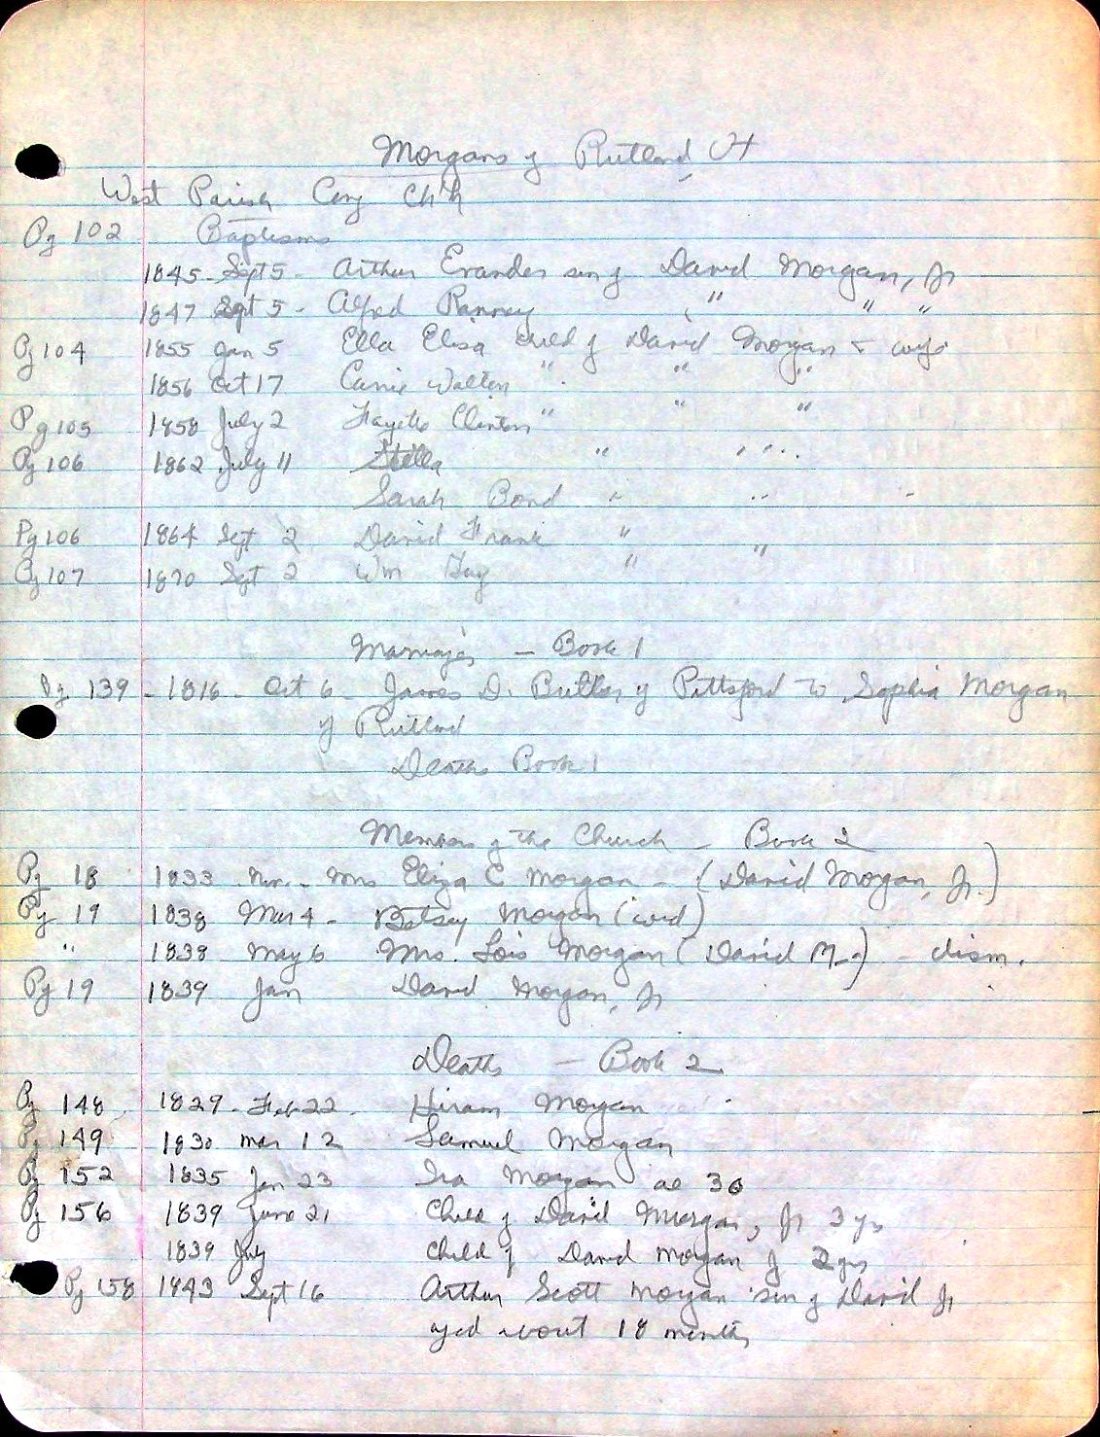 Morgans of Rutland Vt
West Parish Cong Ch'h
Pg 102 Baptisms
1845 - Sept 5 - Arthur Evander son of David Morgan, Jr
1847 Sept 5 - Alfred Ranney " " "
Pg 104 1855 Jan 5 Ella Eliza child of David Morgan & wife
1856 Oct 17 Carrie Walton " " "
Pg 105 1858 July 2 Fayette Clinton " " "
Pg 106 1862 July 11 Stella " " "
Sarah Bond " " "
Pg 106 1864 Sept 2 David Frank " "
Pg 107 1870 Sept 2 Wm Guy "
Marriages - Book 1
Pg 139 - 1816 - Oct 6 - James D. Butler of Pittsford to Sophia Morgan
of Rutland
Deaths Book 1
Members of the Church - Book 2
Pg 18 1833 Nov. - Mrs Eliza C Morgan - (David Morgan, Jr.)
Pg 19 1838 Mar 4 - Betsey Morgan (wid)
" 1838 May 6 Mrs. Lois Morgan (David M-) - dism.
Pg 19 1839 Jan David Morgan, Jr
Deaths - Book 2
Pg 148 1829 - Feb 22 - Hiram Morgan
Pg 149 1830 Mar 12 Samuel Morgan
Pg 152 1835 Jan 23 Ira Morgan ae 36
Pg 156 1839 June 21 Child of David Morgan, Jr 3 yrs
1839 July Child of David Morgan Jr 2 yrs
Pg 158 1843 Sept 16 Arthur Scott Morgan son of David Jr
aged about 18 months